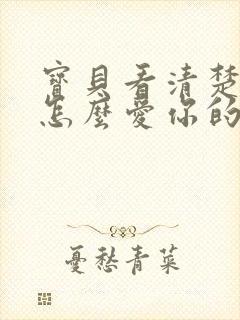 寶貝看清楚
怎麼愛你的
憂愁青菜